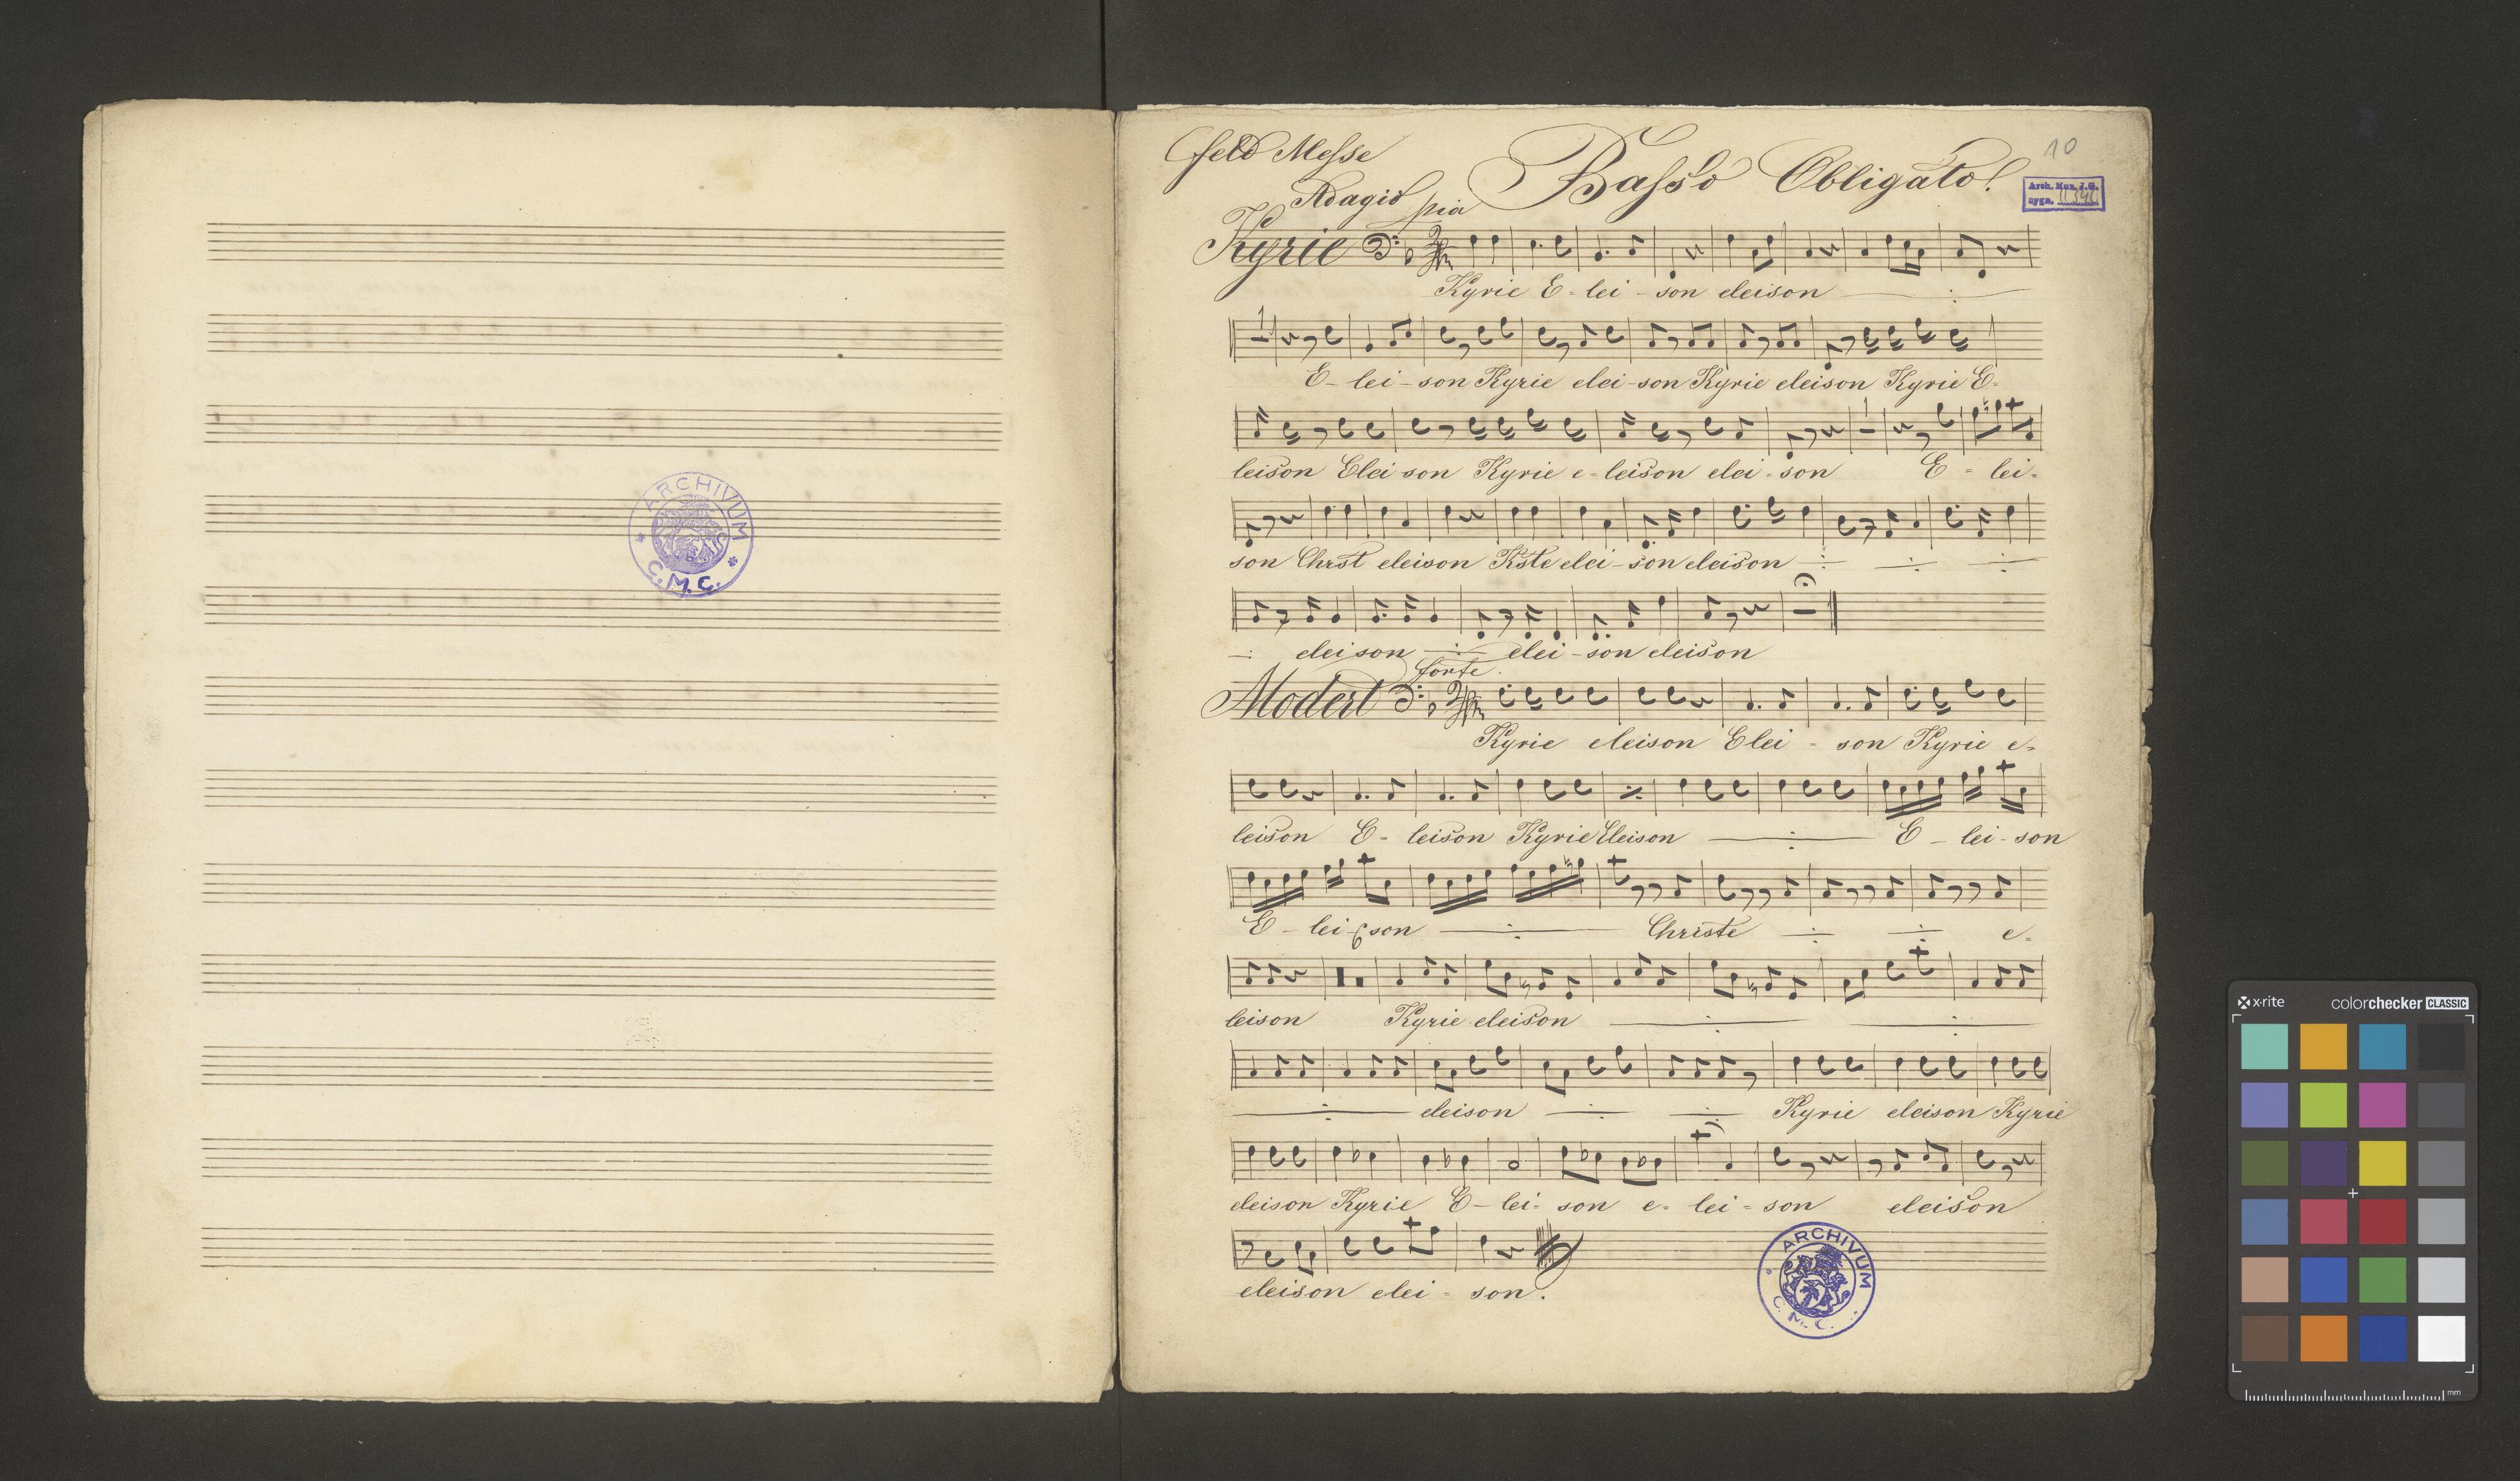 ARCHIVUM
C. M. C.
Feld Messe
Basso Obligato!
10
Arch. Muz. J.G.
sygn.
Adagio pia
Kyrie
Kyrie E - lei - son eleison
1
E - lei - son Kyrie elei - son Kyrie eleison Kyrie E -
1
leison Elei son Kyrie e - leison elei - son E - lei -
son Chrst eleison Kste elei - son eleison
elei son elei - son eleison
Modert forte
Kyrie eleison Elei - son Kyrie e -
leison E - leison Kyrie Eleison E - lei - son
E - lei - son Christe e -
leison Kyrie eleison
eleison Kyrie eleison Kyrie
eleison Kyrie E - lei - son e - lei - son eleison
eleison elei - son.
ARCHIVUM
C. M. C.
x-rite colorchecker CLASSIC
mm